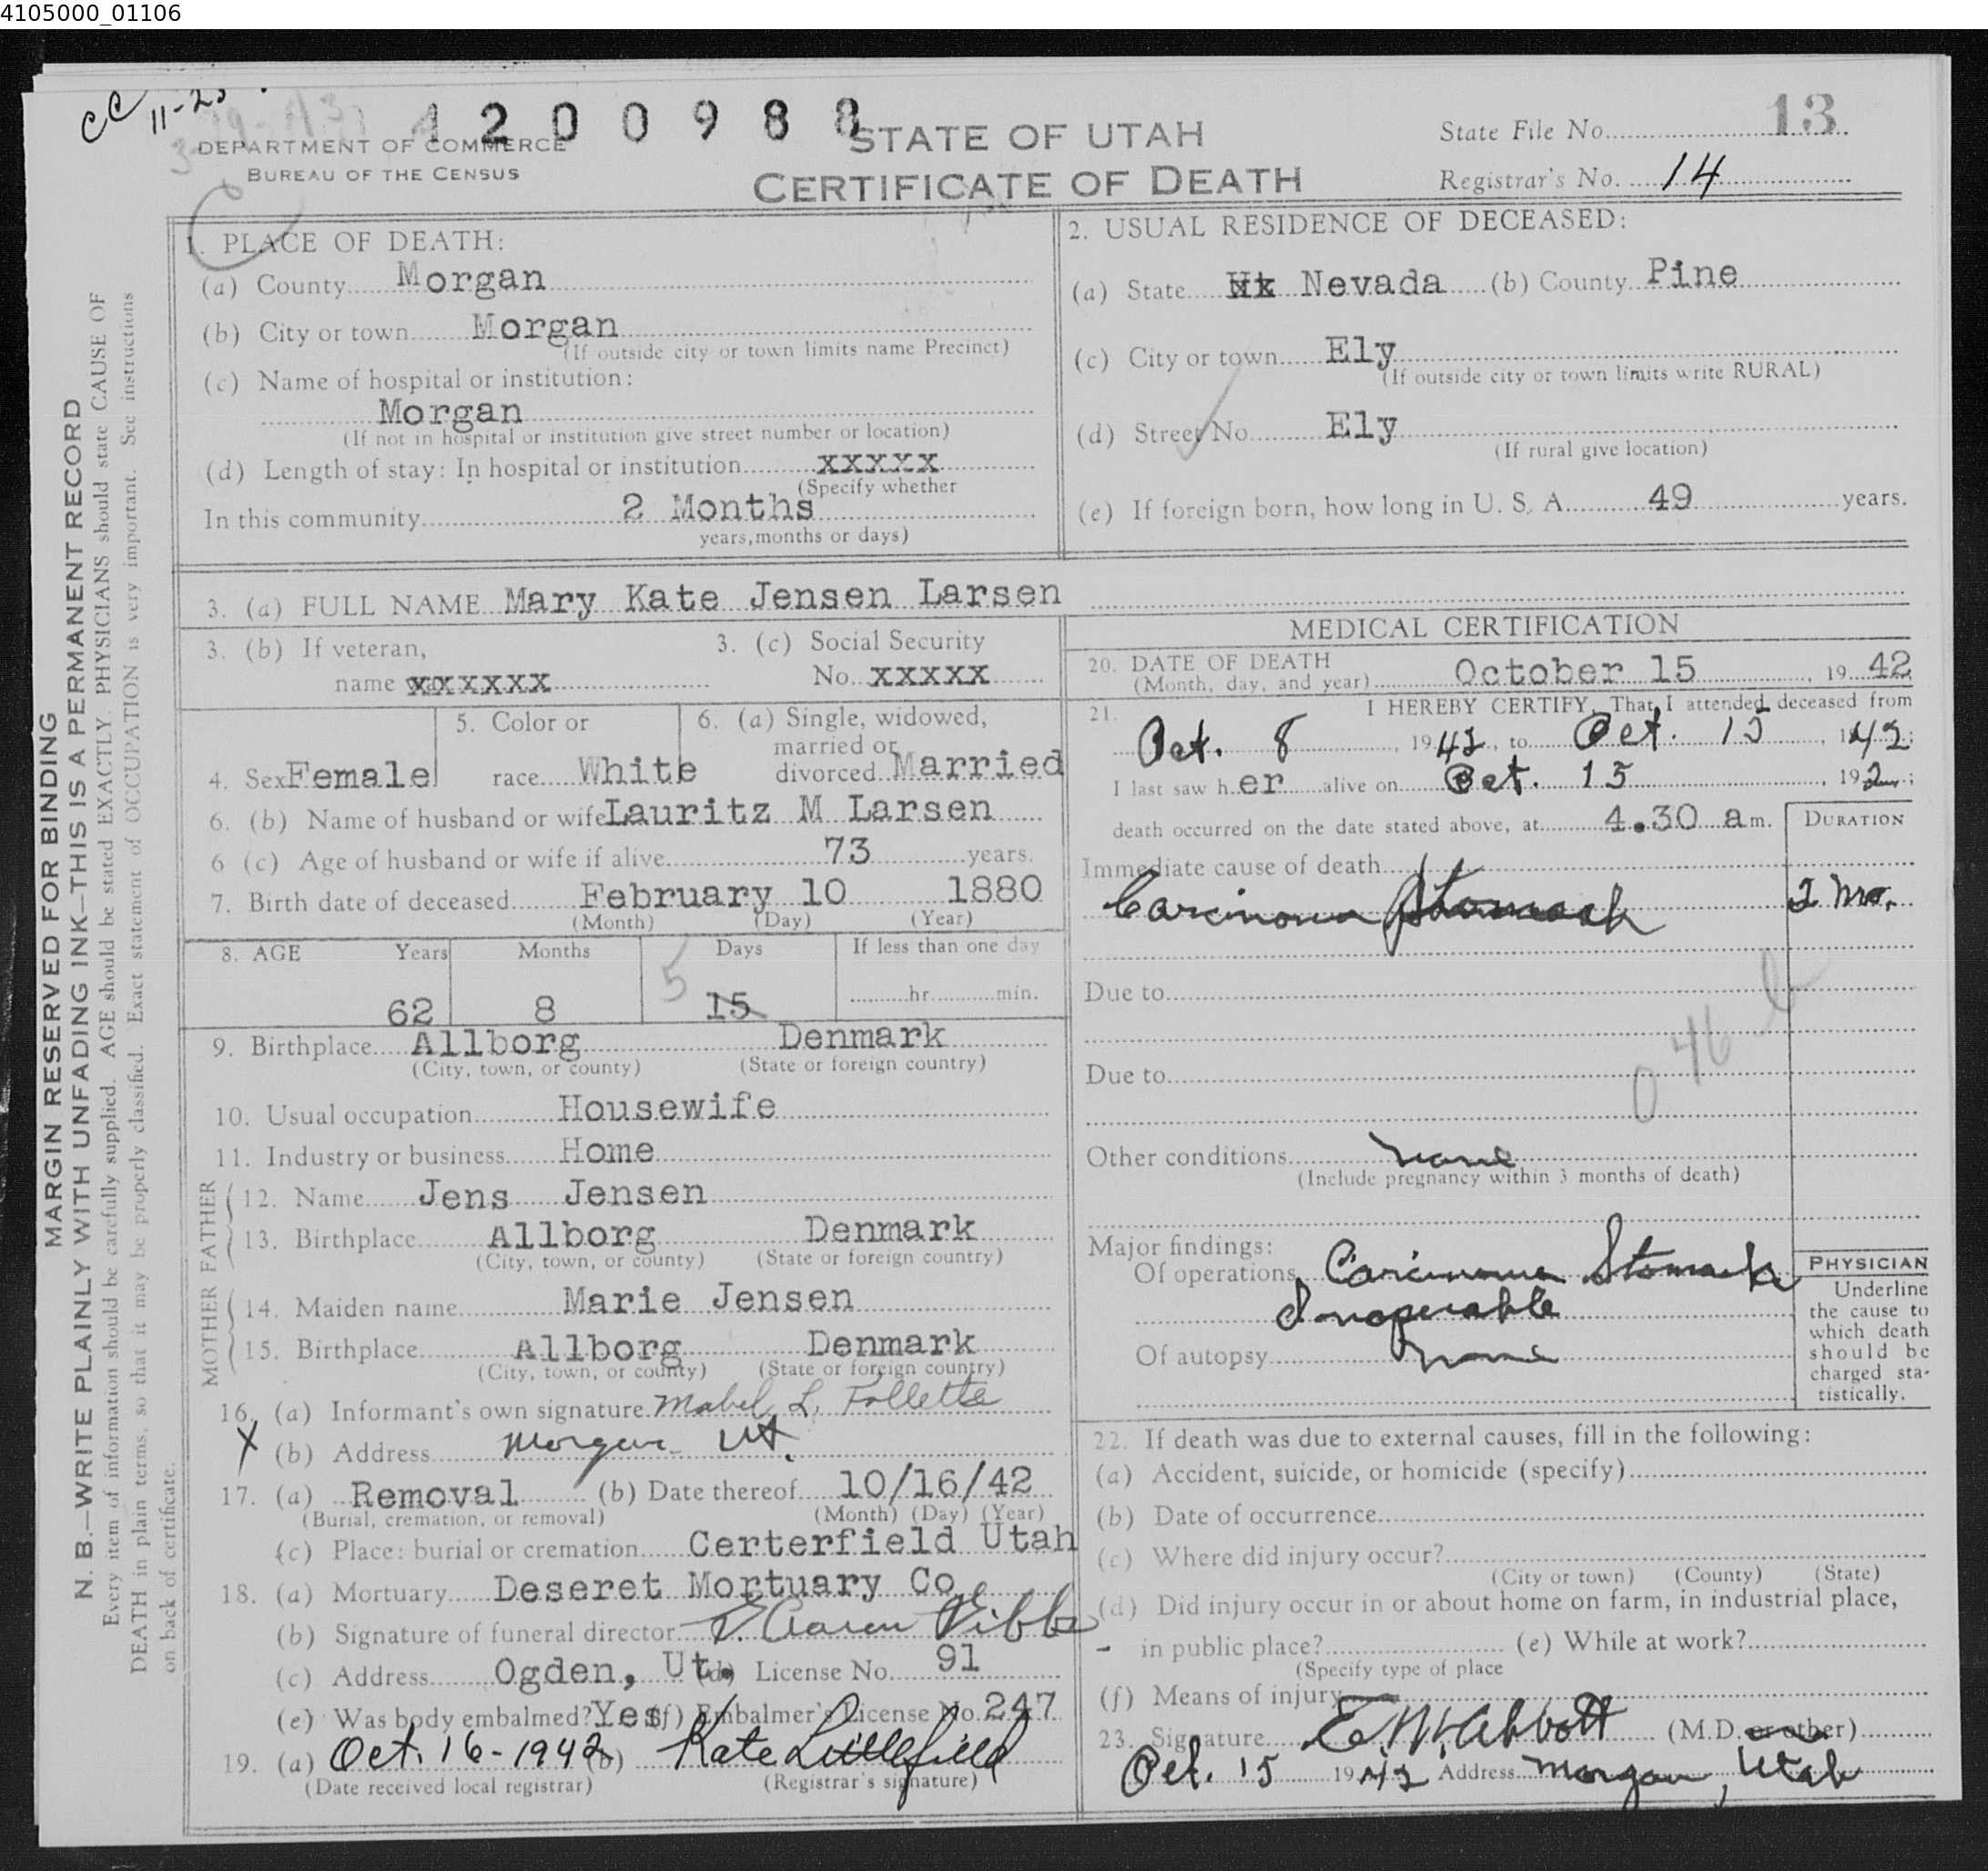 4105000_01106
CC 11-23
4200988
DEPARTMENT OF COMMERCE
BUREAU OF THE CENSUS
STATE OF UTAH
CERTIFICATE OF DEATH
State File No. 13
Registrar's No. 14
MARGIN RESERVED FOR BINDING
N. B.—WRITE PLAINLY WITH UNFADING INK—THIS IS A PERMANENT RECORD
Every item of information should be carefully supplied. AGE should be stated EXACTLY. PHYSICIANS should state CAUSE OF
DEATH in plain terms, so that it may be properly classified. Exact statement of OCCUPATION is very important. See instructions
on back of certificate.
1. PLACE OF DEATH:
(a) County Morgan
(b) City or town Morgan
(If outside city or town limits name Precinct)
(c) Name of hospital or institution:
Morgan
(If not in hospital or institution give street number or location)
(d) Length of stay: In hospital or institution xxxxx
(Specify whether
In this community 2 Months
years, months or days)
2. USUAL RESIDENCE OF DECEASED:
(a) State Nevada (b) County Pine
(c) City or town Ely
(If outside city or town limits write RURAL)
(d) Street No. Ely
(If rural give location)
(e) If foreign born, how long in U. S. A. 49 years.
3. (a) FULL NAME Mary Kate Jensen Larsen
3. (b) If veteran,
name xxxxxx
3. (c) Social Security
No. xxxxx
4. Sex Female
5. Color or
race White
6. (a) Single, widowed,
married or
divorced Married
6. (b) Name of husband or wife Lauritz M Larsen
6 (c) Age of husband or wife if alive 73 years.
7. Birth date of deceased February 10 1880
(Month) (Day) (Year)
8. AGE Years Months Days If less than one day
62 8 5 15 hr. min.
9. Birthplace Allborg Denmark
(City, town, or county) (State or foreign country)
10. Usual occupation Housewife
11. Industry or business Home
FATHER
12. Name Jens Jensen
13. Birthplace Allborg Denmark
(City, town, or county) (State or foreign country)
MOTHER
14. Maiden name Marie Jensen
15. Birthplace Allborg Denmark
(City, town, or county) (State or foreign country)
16. (a) Informant's own signature Mabel L. Follette
X (b) Address Morgan Ut.
17. (a) Removal (b) Date thereof 10/16/42
(Burial, cremation, or removal) (Month) (Day) (Year)
(c) Place: burial or cremation Certerfield Utah
18. (a) Mortuary Deseret Mortuary Co
(b) Signature of funeral director
(c) Address Ogden, Ut. (d) License No. 91
(e) Was body embalmed? Yes (f) Embalmer's License No. 247
19. (a) Oct. 16-1942 (b) Kate Littlefield
(Date received local registrar) (Registrar's signature)
MEDICAL CERTIFICATION
20. DATE OF DEATH
(Month, day, and year) October 15, 19 42
21. I HEREBY CERTIFY, That I attended deceased from
Oct. 8, 1942, to Oct. 15, 1942;
I last saw her alive on Oct. 15, 192;
death occurred on the date stated above, at 4.30 a m.
DURATION
Immediate cause of death
Carcinoma Stomach 2 mo.
Due to
046 b
Due to
Other conditions none
(Include pregnancy within 3 months of death)
Major findings:
Of operations Carcinoma Stomach
Inoperable
Of autopsy none
PHYSICIAN
Underline
the cause to
which death
should be
charged sta-
tistically.
22. If death was due to external causes, fill in the following:
(a) Accident, suicide, or homicide (specify)
(b) Date of occurrence
(c) Where did injury occur?
(City or town) (County) (State)
(d) Did injury occur in or about home on farm, in industrial place,
in public place? (e) While at work?
(Specify type of place
(f) Means of injury
23. Signature E. W. Abbott (M.D. or other)
Oct. 15 1942 Address Morgan, Utah